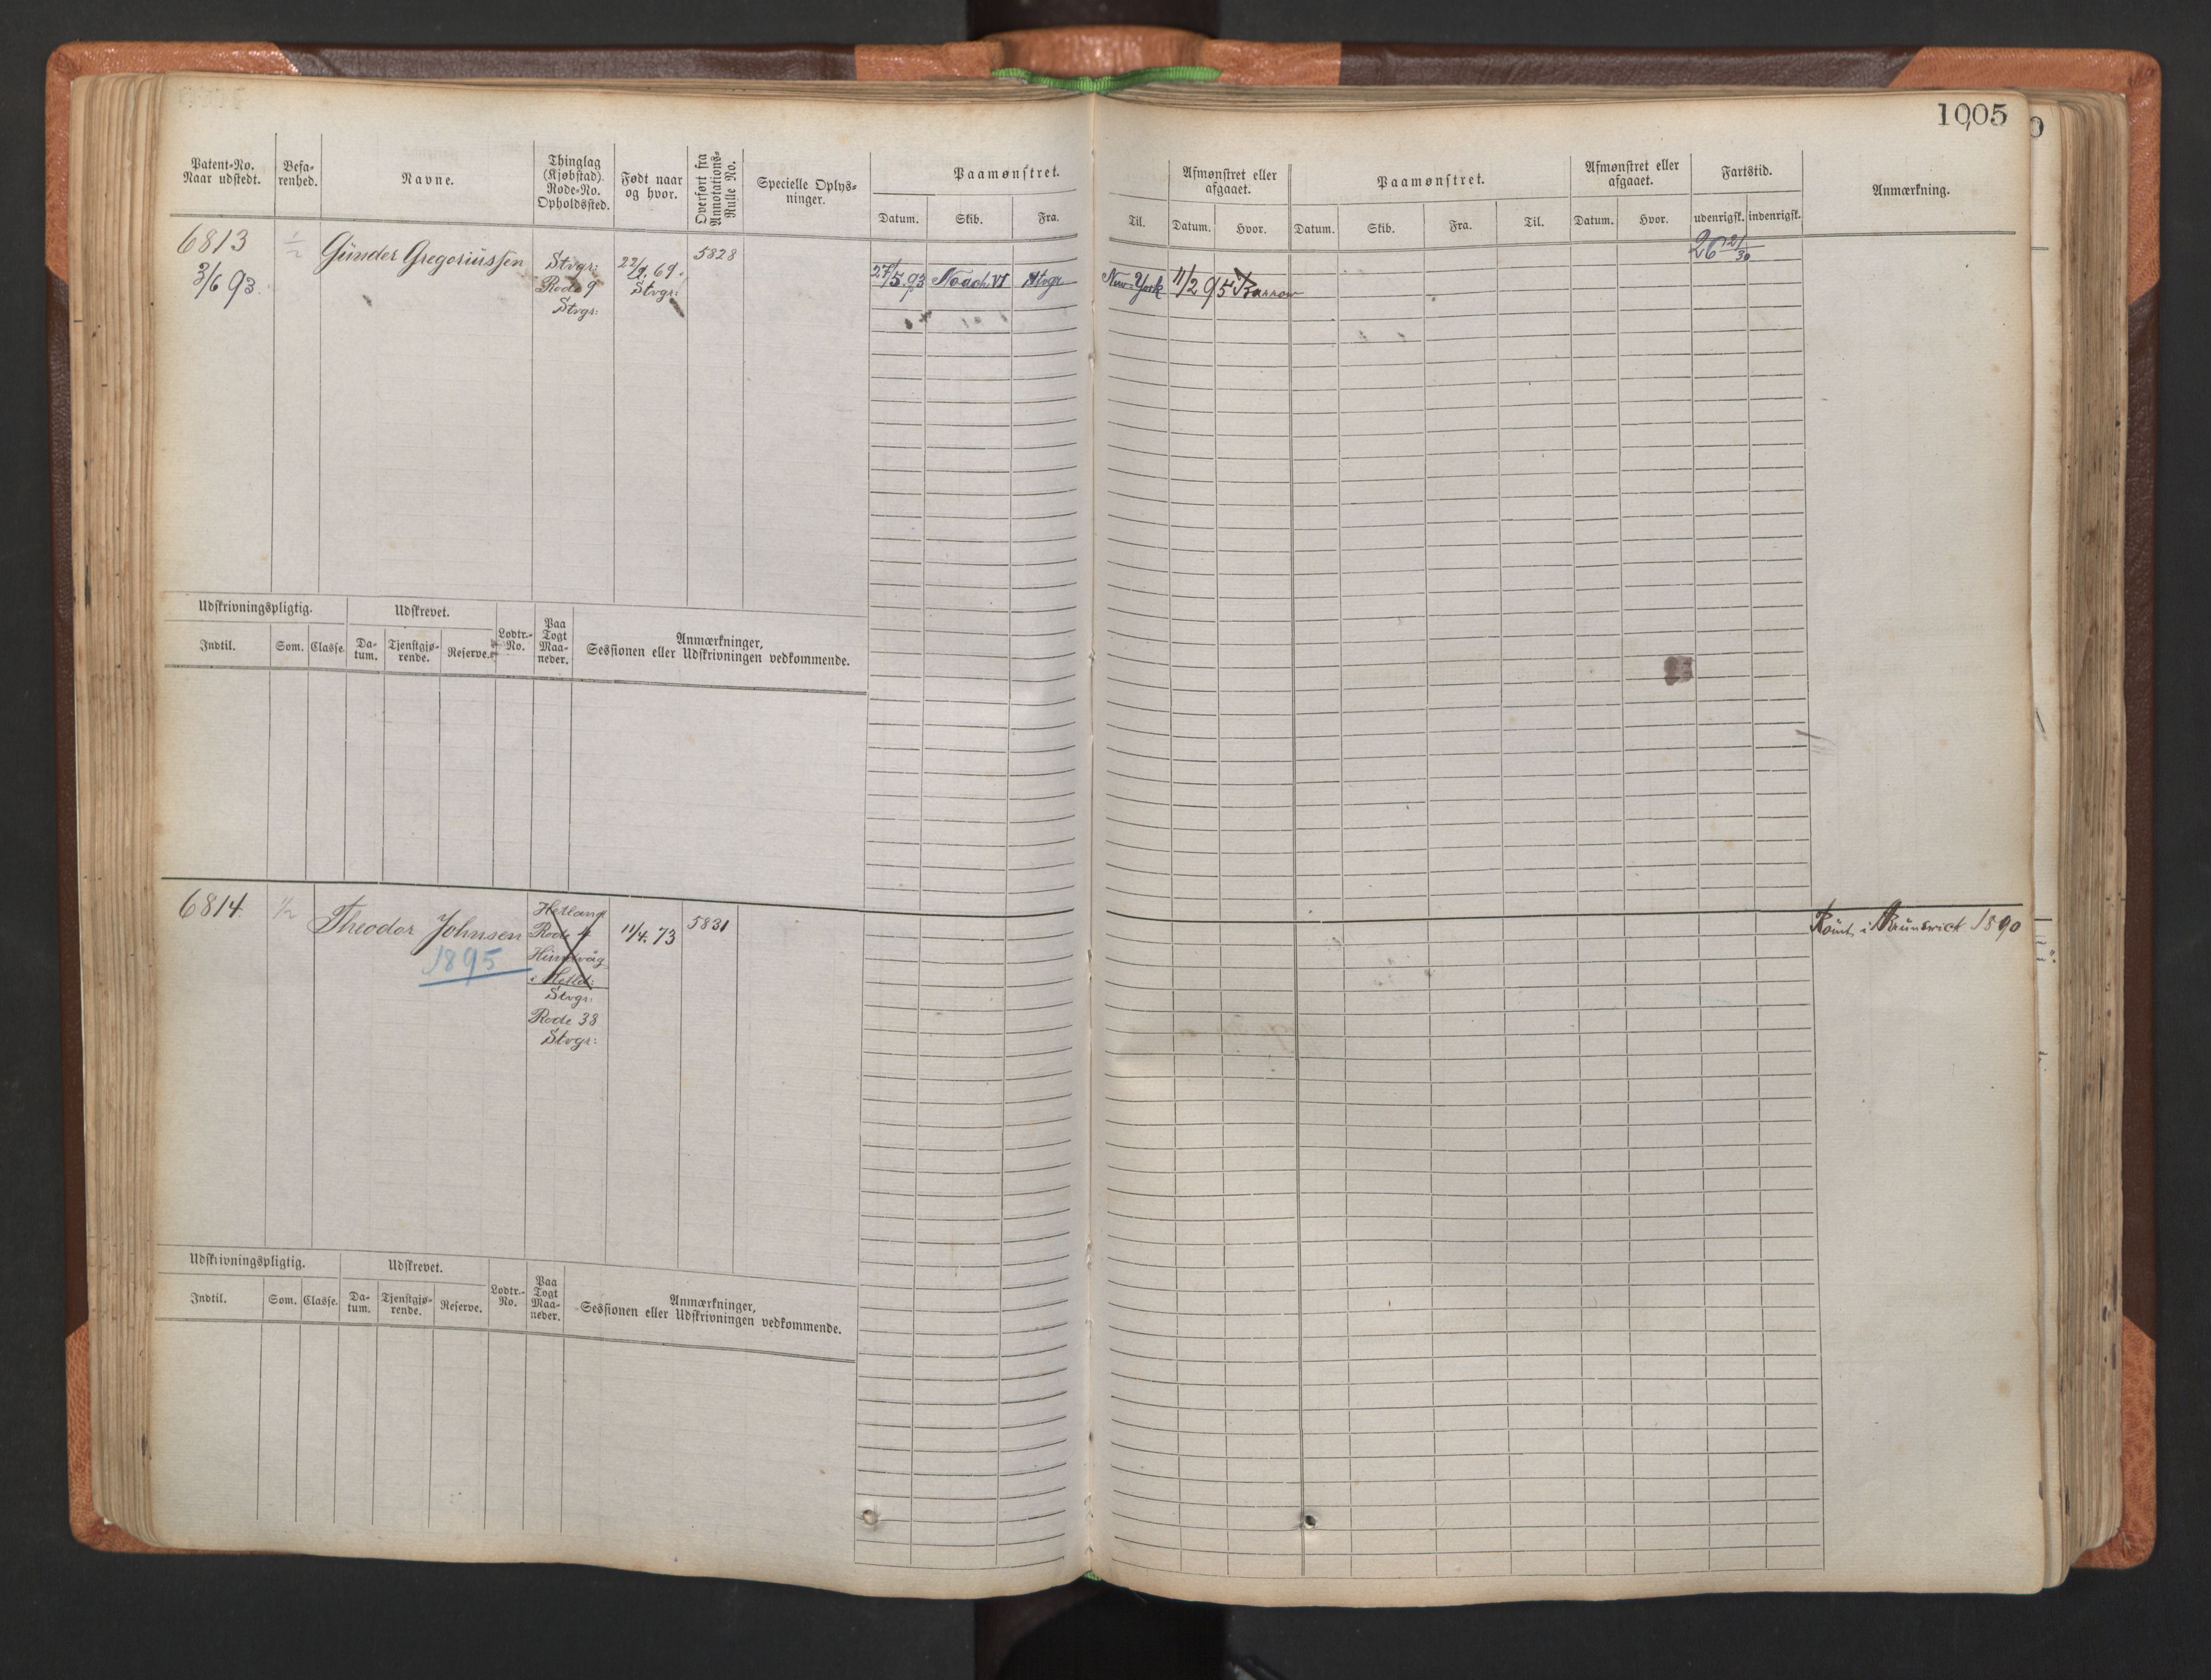 1005
Patent-No. Naar udstedt.
Befa-renhed.
Navne.
Thinglag (Kjøbstad). Rode-No. Opholdssted.
Født naar og hvor.
Overført fra Annotations-Rulle No.
Specielle Oplys-ninger.
Paamønstret.
Datum. Skib. Fra.
Til.
Afmønstret eller afgaaet.
Datum. Hvor.
Paamønstret.
Datum. Skib. Fra. Til.
Afmønstret eller afgaaet.
Datum. Hvor.
Fartstid.
udenrigsk. indenrigsk.
Anmærkning.
6813
3/6 93.
1/2
Gunder Gregoriussen
Stvgr:
Rode 9
Stvgr:
22/9. 69.
Stvgr:
5828
27/5 93 Noach VI Stvgr New-York 11/2 95 Barrow
26 21/30
Udskrivningspligtig.
Udskrevet.
Indtil. Som. Classe.
Da-tum. Tjenstgjø-rende. Reserve.
Lodtr.-No.
Paa Togt Maa-neder.
Anmærkninger,
Sessionen eller Udskrivningen vedkommende.
6814.
1/2
Theodor Johnsen
1895
Hetland
Rode 4
Hundvåg
i Hetld:
Stvgr:
Rode 38
Stvgr:
11/4. 73
5831
Römt i Brunswick 1890
Udskrivningspligtig.
Udskrevet.
Indtil. Som. Classe.
Da-tum. Tjenstgjø-rende. Reserve.
Lodtr.-No.
Paa Togt Maa-neder.
Anmærkninger,
Sessionen eller Udskrivningen vedkommende.